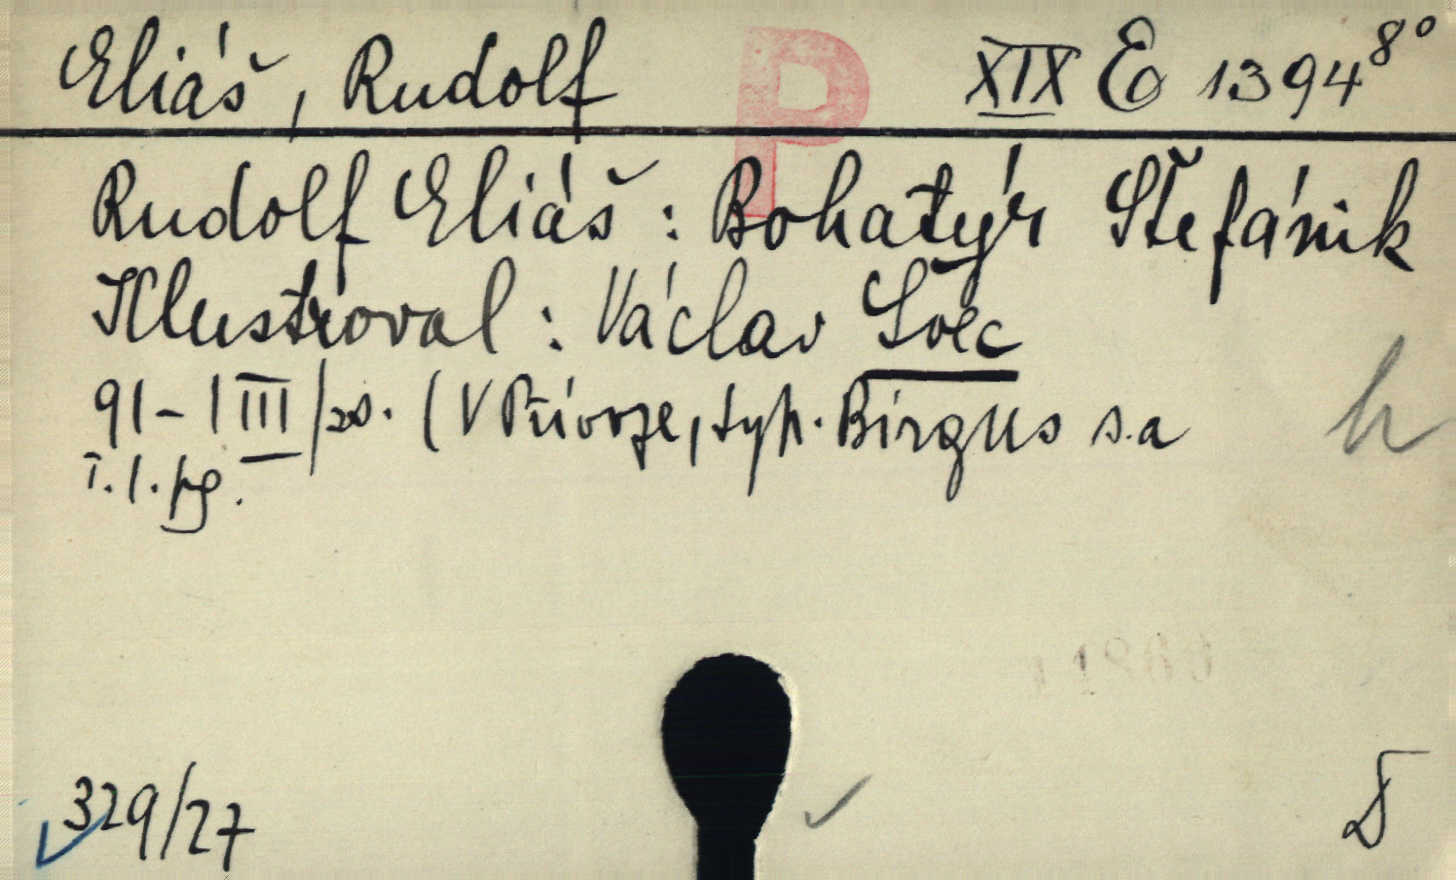 Eliáš, Rudolf XIX E 1394 8°
P
Rudolf Eliáš: Bohatýr Štefánik
Illustroval: Václav Švec
91-1 III/ (V Přívoze, typ. Birgus s.a
I. 1. pg.
h
329/27